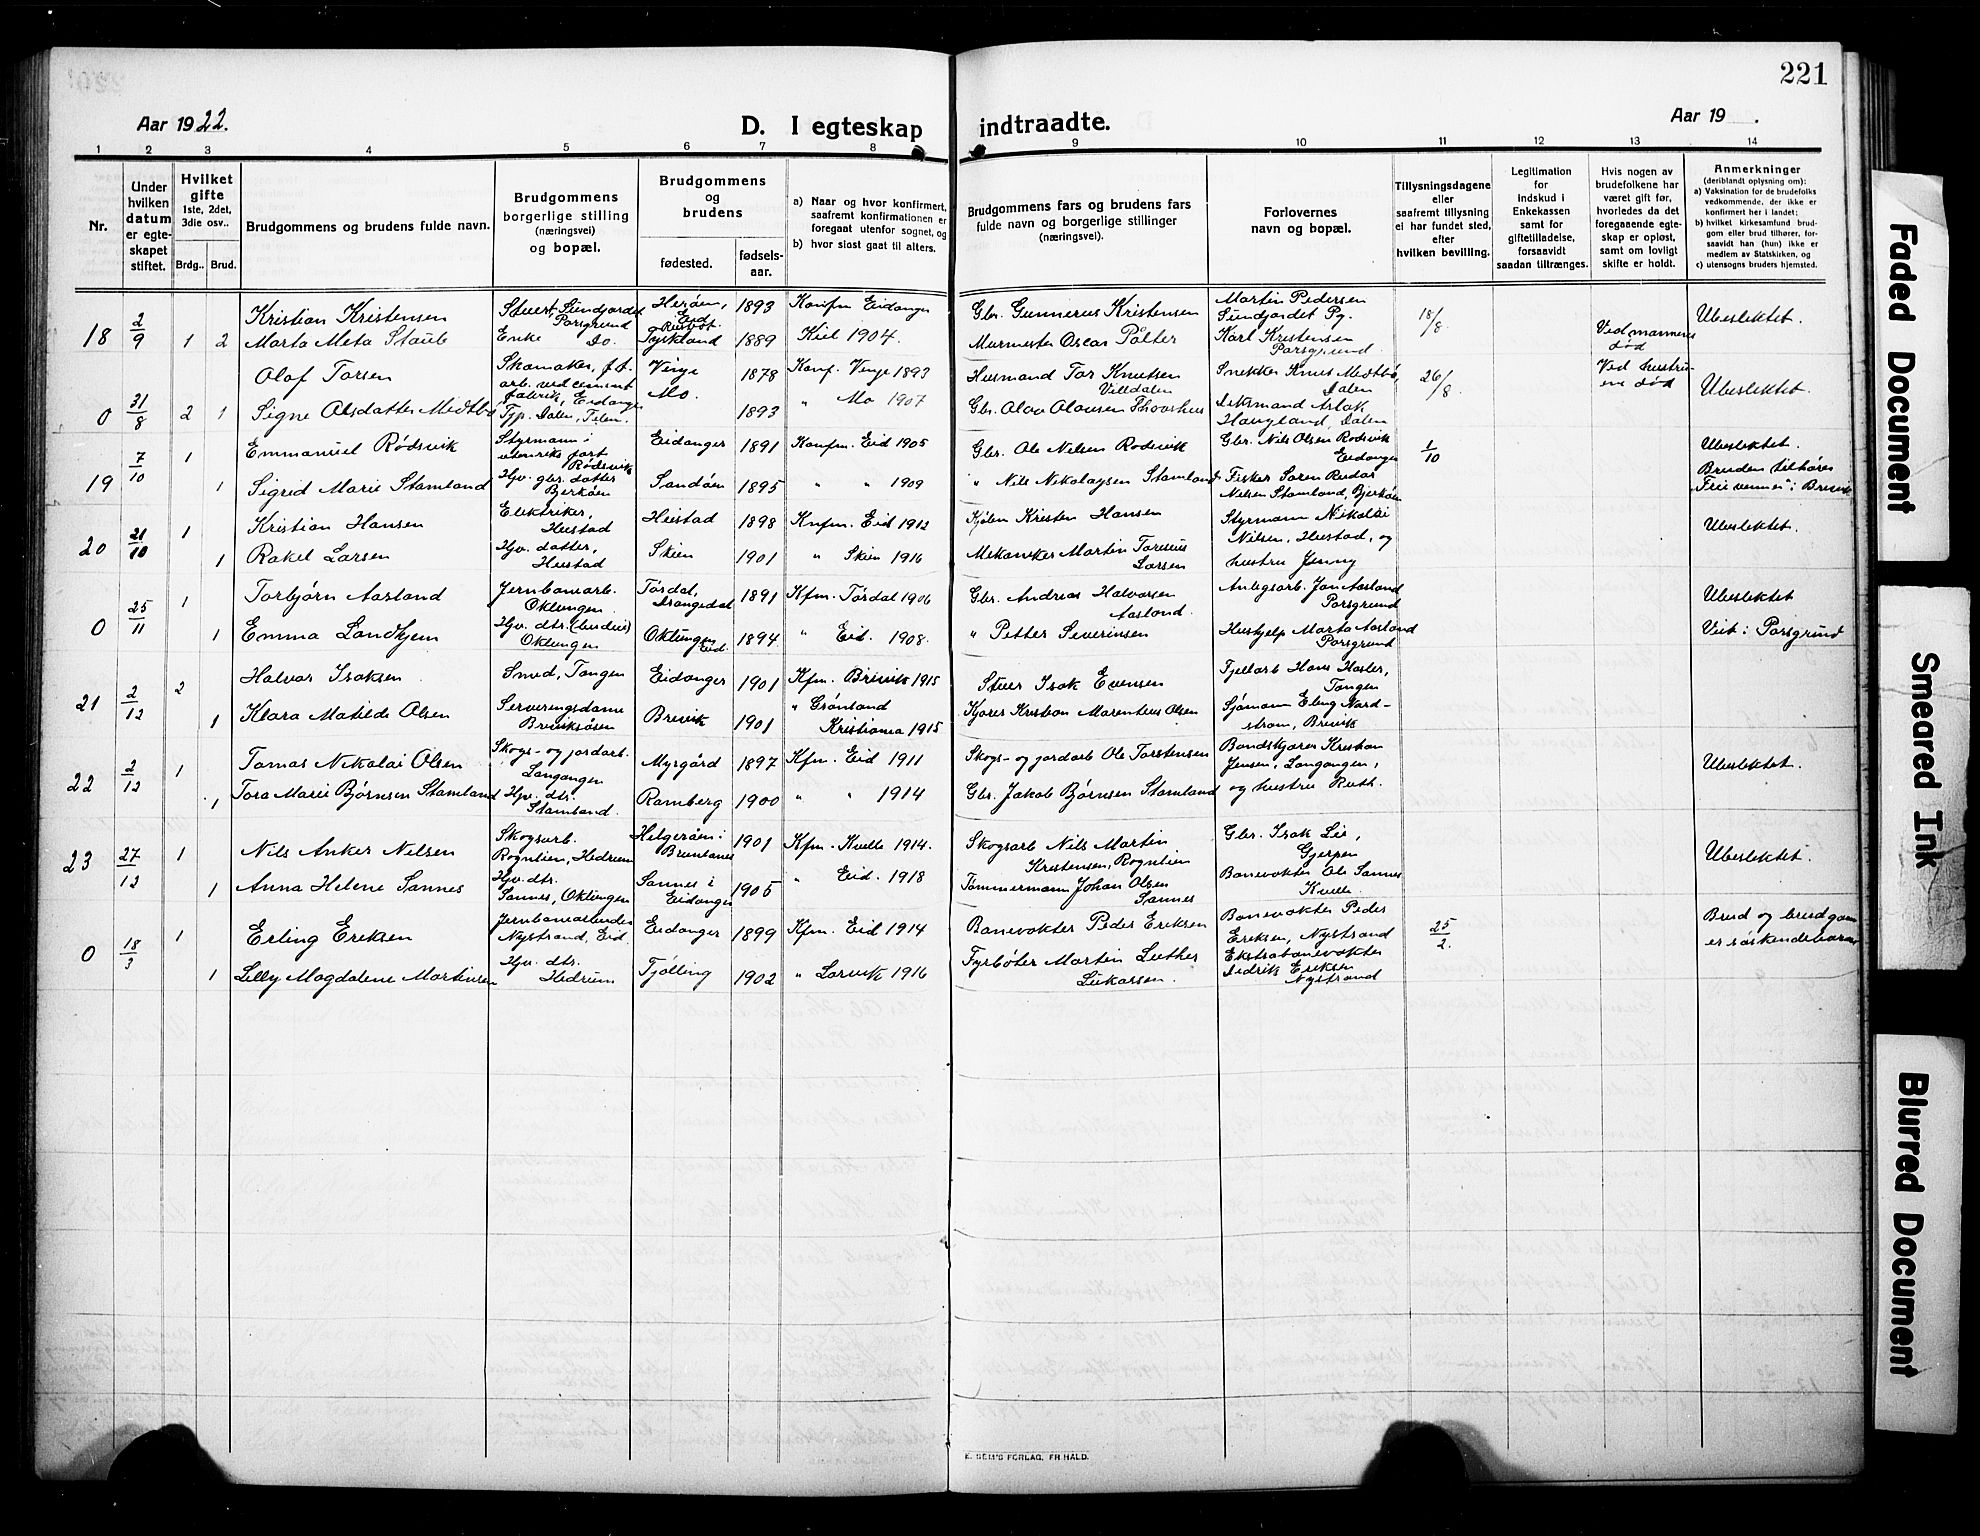 221
Aar 1922.
D. I egteskap indtraadte.
Aar 19 .
1 2 3 4 5 6 7 8 9 10 11 12 13 14
Nr.
Under hvilken datum er egteskapet stiftet.
Hvilket gifte 1ste, 2det, 3die osv..
Brdg.. Brud.
Brudgommens og brudens fulde navn.
Brudgommens borgerlige stilling (næringsvei) og bopæl.
Brudgommens og brudens
fødested. fødselsaar.
a) Naar og hvor konfirmert, saafremt konfirmationen er foregaat utenfor sognet, og
b) hvor sidst gaat til alters.
Brudgommens fars og brudens fars fulde navn og borgerlige stillinger (næringsvei).
Forlovernes navn og bopæl.
Tillysningsdagene eller saafremt tillysning ei har fundet sted, efter hvilken bevilling.
Legitimation for Indskud i Enkekassen samt for giftetilladelse, forsaavidt saadan tiltrænges.
Hvis nogen av brudefolkene har været gift før, hvorledes da det foregaaende egteskap er opløst, samt om lovligt skifte er holdt.
Anmerkninger (deriblandt oplysning om):
a) Vaksination for de brudefolks vedkommende, der ikke er konfirmert her i landet;
b) hvilket kirkesamfund brudgom eller brud tilhører, forsaavidt han (hun) ikke er medlem av Statskirken, og
c) utensogns bruders hjemsted.
18 2/9 Kristian Kristensen Stuert, Sundjordet Porsgrund Herøen, Eid 1893 Konfm Eidanger Gbr. Gunnerus Kristensen Martin Pedersen Sundjordet Pg. 18/8 Ubeslektet.
1 2 Marta Meta Staub Enke Do. Tyskland 1889 Kiel 1904. Murmester Oscar Pälter Karl Kristensen Porsgrund Ved mannens død
0 31/8 Olaf Torsen Skomaker, f.t. arb. ved cement fabrik, Eidanger Vinje 1878 Konf. Vinje 1893 Husmand Tor Knutsen Villdalen Snekker Knut Medtbø, Dalen 26/8 Ved hustruens død Ubeslektet.
2 1 Signe Olsdatter Medtbø Typ. Dalen, Telem. Mo. 1893 " Mo 1907 Gbr. Olav Olausen Thovshus Aslak Haugland, Dalen
19 7/10 1 Emmanuel Rødsvik Styrmann i utenrik fart Rødsvik Eidanger 1891 Konfm. Eid 1905 Gbr. Ole Nilsen Rødsvik Gbr. Nils Olsen Rødsvik Eidanger 1/10 Ubeslektet.
1 Sigrid Marie Stamland Hjv. gbr. datter Bjerkøen Sandøen 1895 " " 1909 " Nils Nikolaysen Stamland Fisker Søren Reidar Nilsen Stamland, Bjerkøen Bruden tilhører „Frie venner" i Brevik
20 21/10 1 Kristian Hansen Elektriker, Heistad Heistad 1898 Knfm. Eid 1912 Kristen Hansen Styrmann Nikolai Nilsen, Heistad, og Ubeslektet.
1 Rakel Larsen Hjv. datter, Heistad Skien 1901 " Skien 1916 Mekaniker Martin Toresius Larsen hustru Jenny
0 25/11 1 Torbjørn Aasland Jernbanearb. Oklungen Tørdal, Drangedal 1891 Kfm. Tørdal 1906 Gbr. Andreas Halvorsen Aasland. Anlegsarb. Jon Aasland Porsgrund Ubeslektet
1 Emma Landhjem Hjv. dtr. Oklungen Oklungen Eid. 1894 " Eid. 1908. " Petter Severinsen Hushjelp Marta Aasland Porsgrund Viet i Porsgrund
21 2/12 2 Halvar Isaksen Smed, Tangen Eidanger 1901 Kfm. Brevik 1915 Stuer Isak Evensen Fjellarb Hans Hasler, Tangen
1 Klara Matilde Olsen Serveringsdame Breviksåsen Brevik 1901 " Grønland Kristiania 1915 Kjører Kristian Marentius Olsen Sjømann Eling Nordstrøm, Brevik
22 2/12 1 Tomas Nikolai Olsen Skogs- og jordarb. Langangen Myrgård 1897 Kfm. Eid 1911 Skogs- og jordarb Ole Torstensen Kristian Jensen, Langangen, Ubeslektet.
1 Tora Marie Bjørnsen Stamland Hjv. dtr. Stamland. Ramberg 1900 " " 1914 Gbr. Jakob Bjørnsen Stamland og hustru Ruth.
23 27/12 1 Nils Anker Nilsen Skogsarb. Rogntien, Hedrum Helgeråen i Brunlanes 1901 Kfm. Kvelle 1914. Skogsarb Nils Martin Kristensen, Rogntien Gbr. Isak Lie, Gjerpen Ubeslektet.
1 Anna Helene Sannes Hjv. dtr. Sannes, Oklungen Sannes i Eidanger 1905 " Eid. 1918 Tømmermann Johan Olsen Sannes Banevokter Ole Sannes Kvelle
0 18/3 1 Erling Eriksen Jernbanearbeider Nystrand, Eid. Eidanger 1899 Kfm. Eid 1914 Banevokter Peder Eriksen Banevokter Peder Eriksen, Nystrand 25/2. Brud og brudgom er søskendebarn
1 Lilly Magdalene Martinsen Hjv. dtr. Hedrum Tjølling 1902 " Larvik 1916 Fyrbøter Martin Luther Lukassen. Ekstrabanevokter Didrik Eriksen Nystrand
E. SEM'S FORLAG, FR.HALD.
Faded Document
Smeared Ink
Blurred Document